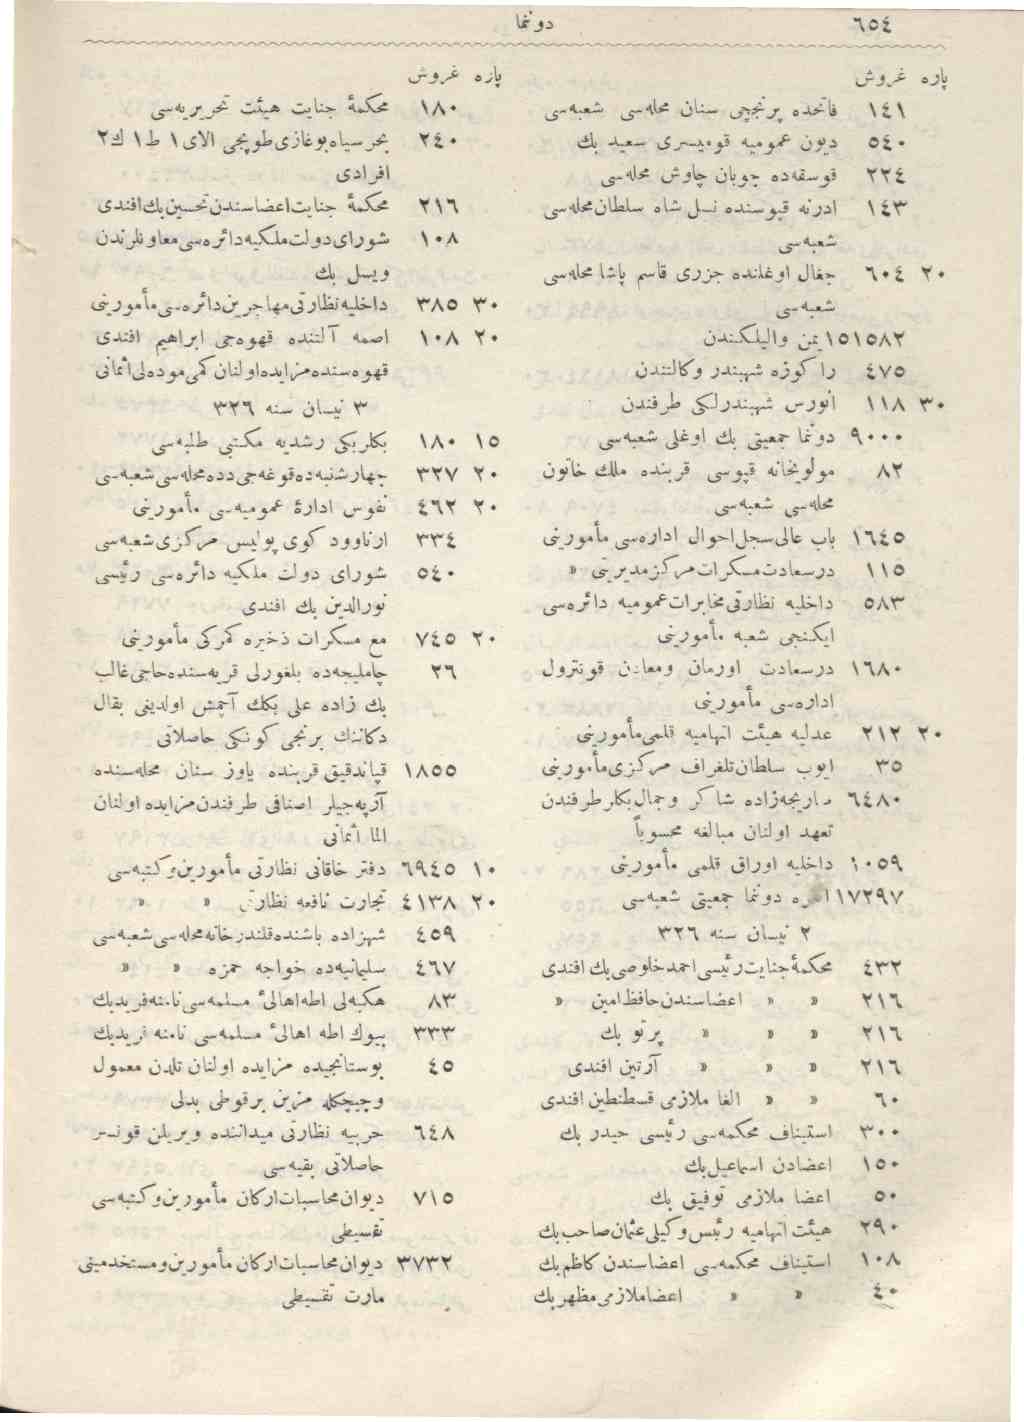 ٦٥٤
دونما
پاره غروش
١٤١ فاتحده پرنجچی سنان محله‌سی شعبه‌سی
٥٤٠ دیون عمومیه قومیسری سعید بك
٢٢٤ قوسقه‌ده چوبان چاوش محله‌سی
١٤٣ ادرنه قپوسنده نسل شاه سلطان محله‌سی
شعبه‌سی
٢٠ ٦٠٤ جغال اوغلنده جزری قاسم پاشا محله‌سی
شعبه‌سی
١٥١٥٨٢ یمن والیلکندن
٤٧٥ راکوزه شهبندر وکالتندن
٣٠ ١١٨ انورس شهبندرلکی طرفندن
٩٠٠٠ دونما جمعیتی بك اوغلی شعبه‌سی
٨٢ مولویخانه قپوسی قربنده ملك خاتون
محله‌سی شعبه‌سی
١٦٤٥ باب عالی سجل احوال اداره‌سی مأمورینی
١١٥ درسعادت مسکرات مرکز مدیریتی »
٥٨٣ داخلیه نظارتی مخابرات عمومیه دائره‌سی
ایکنجی شعبه مأمورینی
١٦٨٠ درسعادت اورمان ومعادن قونترول
اداره‌سی مأمورینی
٢٠ ٢١٢ عدلیه هیئت اتهامیه قلمی مأمورینی
٣٥ ایوب سلطان تلغراف مرکزی مأمورینی
٦٤٨٠ زاده شاکر وجمال بکلر طرفندن
تعهد اولنان مبالغه محسوباً
١٠٥٩ داخلیه اوراق قلمی مأمورینی
١٧٢٩٧ دونما جمعیتی شعبه‌سی
٢ نیسان سنه ٣٢٦
٤٣٢ محکمهٔ جنایت رئیسی احمد خلوصی بك افندی
٢١٦ » » اعضاسندن حافظ امین »
٢١٦ » » » پرتو بك
٢١٦ » » » آرتین افندی
٦٠ » » الغا ملازمی قسطنطین افندی
٣٠٠ استیناف محکمه‌سی رئیسی حیدر بك
١٥٠ اعضادن اسماعیل بك
٥٠ اعضا ملازمی توفیق بك
٢٩٠ هیئت اتهامیه رئیس وکیلی عثمان صاحب بك
١٠٨ استیناف محکمه‌سی اعضاسندن کاظم بك
٤٠ » » اعضا ملازمی مظهر بك
پاره غروش
١٨٠ محکمهٔ جنایت هیئت تحریریه‌سی
٢٤٠ بحر سیاه بوغازی طوپجی الای ١ ط ١ ك ٢
افرادی
٢١٦ محکمهٔ جنایت اعضاسندن تحسین بك افندی
١٠٨ شورای دولت ملکیه دائره‌سی معاونلرندن
ویسل بك
٣٠ ٣٨٥ داخلیه نظارتی مهاجرین دائره‌سی مأمورینی
٢٠ ١٠٨ اصمه آلتنده قهوه‌جی ابراهیم افندی
قهوه‌سنده مزایده اولنان کمی موده‌لی اثمانی
٣ نیسان سنه ٣٢٦
١٥ ١٨٠ بکلربکی رشدیه مکتبی طلبه‌سی
٢٠ ٣٢٧ چهارشنبه‌ده قوغه‌جی دده محله‌سی شعبه‌سی
٢٠ ٤٦٢ نفوس ادارهٔ عمومیه‌سی مأمورینی
٣٣٤ ارناوود کوی پولیس مرکزی شعبه‌سی
٥٤٠ شورای دولت ملکیه دائره‌سی رئیسی
نورالدین بك افندی
٢٠ ٧٤٥ مع مسکرات ذخیره کمرکی مأمورینی
٢٦ چاملیجه‌ده بلغورلی قریه‌سنده حاجی غالب
بك زاده علی بكك آچمش اولدیغی بقال
دکاننك برنجی کونکی حاصلاتی
١٨٥٥ قپاندقیق قربنده یاوز سنان محله‌سنده
آرپه‌جیلر اصنافی طرفندن مزایده اولنان
الما اثمانی
١٠ ٦٩٤٥ دفتر خاقانی نظارتی مأمورین وکتبه‌سی
٢٠ ٤١٣٨ تجارت نافعه نظارتی » »
٤٥٩ شهزاده باشنده قلندرخانه محله‌سی شعبه‌سی
٤٦٧ سلیمانیه‌ده خواجه حمزه » »
٨٣ هکبه‌لی اطه اهالیٔ مسلمه‌سی نامنه فرید بك
٣٣٣ بیوك اطه اهالیٔ مسلمه‌سی نامنه فرید بك
٤٥ بوستانجیده مزایده اولنان تلدن معمول
وچیچکله مزین بر قوطی بدلی
٦٤٨ حربیه نظارتی میداننده ویریلن قونسر
حاصلاتی بقیه‌سی
٧١٥ دیوان محاسبات ارکان مأمورین وکتبه‌سی
تقسیطی
٣٧٣٢ دیوان محاسبات ارکان مأمورین ومستخدمینی
مارت تقسیطی